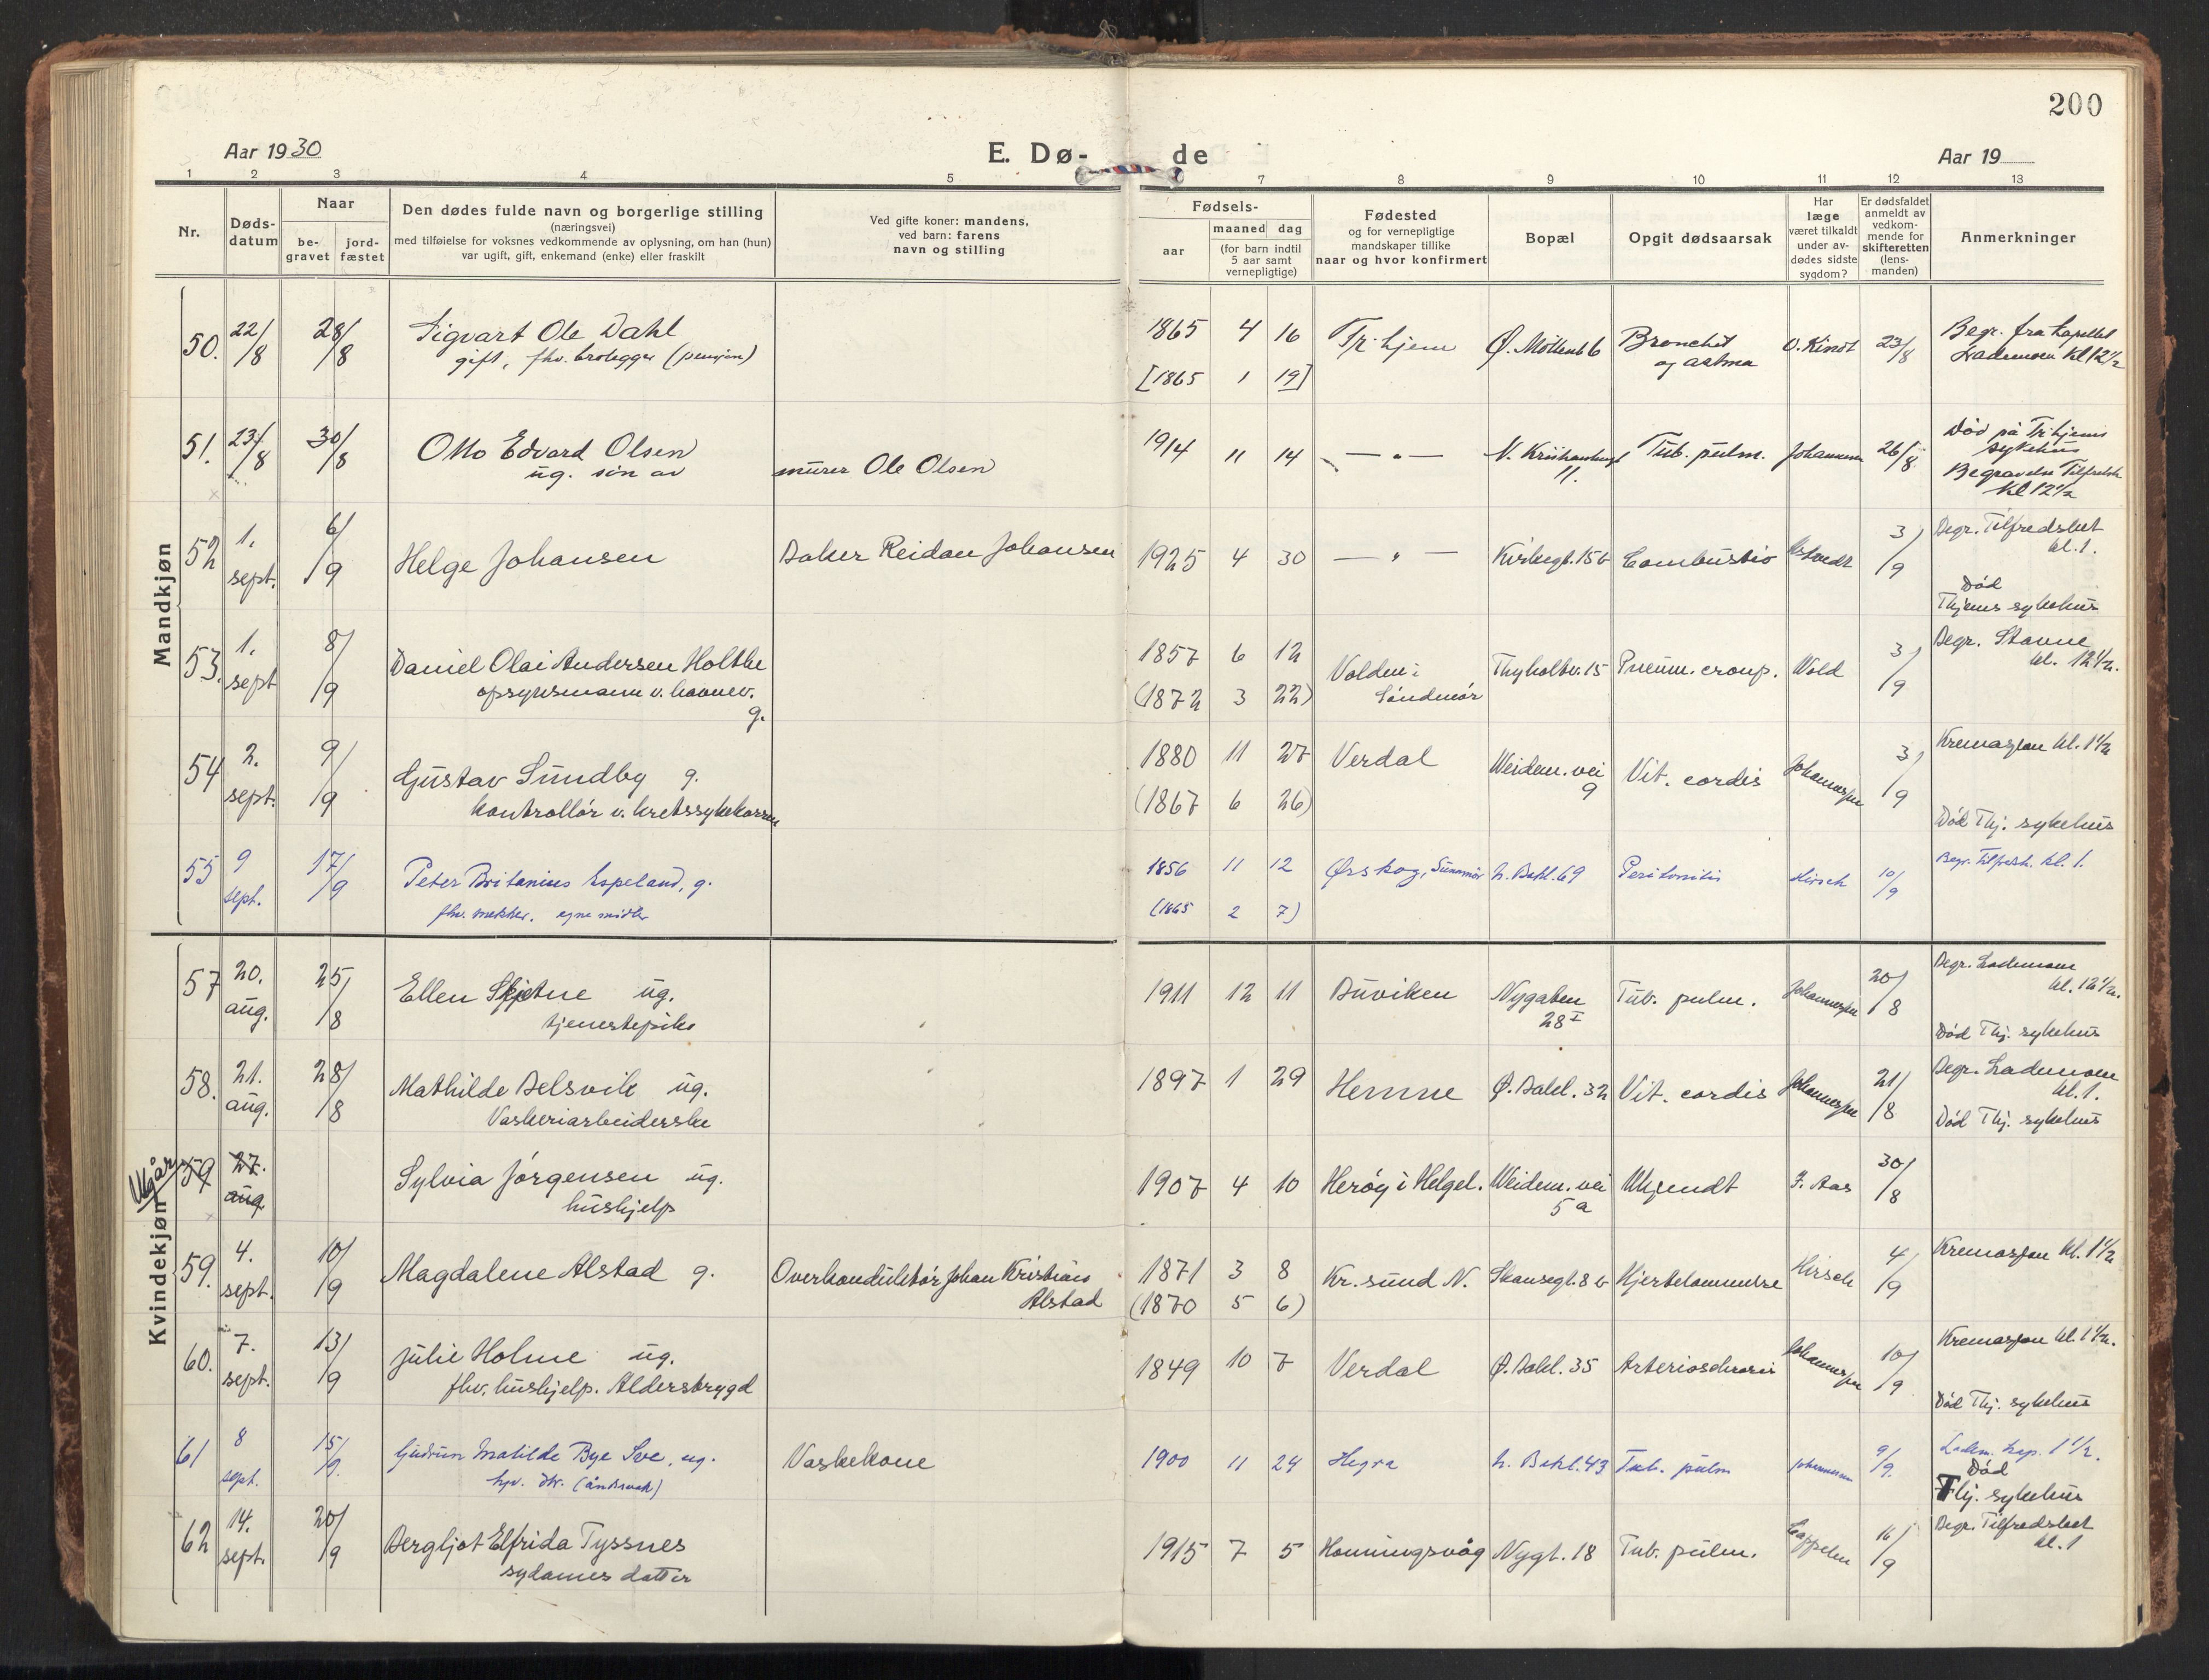 200
Aar 1930
E. Dø-
de
Aar 19
1 2 3 4 5 7 8 9 10 11 12 13
Nr.
Døds-
datum
Naar
be-
gravet
jord-
fæstet
Den dødes fulde navn og borgerlige stilling
(næringsvei)
med tilføielse for voksnes vedkommende av oplysning, om han (hun)
var ugift, gift, enkemand (enke) eller fraskilt
Ved gifte koner: mandens,
ved barn: farens
navn og stilling
Fødsels-
aar
maaned dag
(for barn indtil
5 aar samt
vernepligtige)
Fødested
og for vernepligtige
mandskaper tillike
naar og hvor konfirmert
Bopæl
Opgit dødsaarsak
Har
læge
været tilkaldt
under av-
dødes sidste
sygdom?
Er dødsfaldet
anmeldt av
vedkom-
mende for
skifteretten
(lens-
manden)
Anmerkninger
Mandkjøn
50. 22/8 28/8 Sigvart Ole Dahl 1865 4 16 Tr.hjem Ø. Møllenb 6 Bronchit O. Kindt 23/8 Begr. fra kapellet
gift, fhv. brolegger (pensjon) [1865 1 19] og astma Lademoen kl 12½
51. 23/8 30/8 Otto Edvard Olsen murer Ole Olsen 1914 11 14 — " — 11. Tub. pulm. Johannesen 26/8 Død på Tr.hjems
ug. søn av sykehus
Begravelse Tilfredsh
kl 12½
52 1. sept. 6/9 Helge Johansen Baker Reidar Johansen 1925 4 30 — " — Kirkegt. 15 b Combustio 3/9 Begr. Tilfredshet
kl. 1.
Død
Thjems sykehus
53. 1. sept 8/9 Daniel Olai Andersen Holthe 1857 6 12 Volden i Tyholtv. 15 Pneum. croup. Wold 3/9 Begr. Stavne
opsynsmann v. havnev. (1872 3 22) Søndmør kl. 12½.
g.
54 2. sept. 9/9 Gustav Sundby g. 1880 11 27 Verdal Weidem. vei 9 Vit. cordis Johannessen 3/9 Kremasjon kl. 1½
kontrollør v. kretssykekassen (1867 6 26)
Død Thj. sykehus
55 9 sept. 17/9 Peter Britanius Espeland, g. 1856 11 12 Ørskog, Sunnmør N. Bakl. 69 Peritonitis Hirsch 10/9 Begr. Tilfredsh. kl. 1.
fhv. egne midler (1865 2 7)
Kvindekjøn
57 20. aug. 25/8 Ellen Skjetne ug. 1911 12 11 Buviken Nygaten 28 I Tub. pulm. Johannessen 20/8 Begr. Lademoen
tjenestepike kl. 12½.
Død Thj. sykehus
58. 21. aug. 28/8 Mathilde Belsvik ug. 1897 1 29 Hemne Ø. Bakl. 32 Vit. cordis Johannessen 21/8 Begr. Lademoen
Vaskeriarbeiderske kl. 1.
Død Thj. sykehus
Utgår 59 27. aug. Sylvia Jørgensen ug. 1907 4 10 Herøy i Helgel. Weidem. vei 5a Ukjendt F. Aas 30/8
hushjelp
59. 4. sept. 10/9 Magdalene Alstad g. Overkonduktør Johan Kristian 1871 3 8 Kr.sund N. Skansegt. 8 b Hjertelammelse Hirsch 4/9 Kremasjon kl. 1½
Alstad (1870 5 6)
60. 7. sept. 13/9 Julie Holme ug. 1849 10 7 Verdal Ø. Bakl. 35 Arteriosclerosis Johannessen 10/9 Kremasjon kl. 1½.
fhv. hushjelp. Alderstrygd
Død Thj. sykehus
61 8 sept. 15/9. Gudrun Matilde Bye Sve, ug. Vaskekone 1900 11 24 Hegra N. Bakl. 43 Tub. pulm Johannessen 9/9. Ladem. kap. 1½.
(åndssvak) Død
Thj. sykehus
62 14. sept. 20/9 Bergljot Elfrida Tyssnes 1915 7 5 Honningsvåg Nygt. 18 Tub. pulm. Cappelen 16/9 Begr. Tilfredshet
sydames datter kl. 1